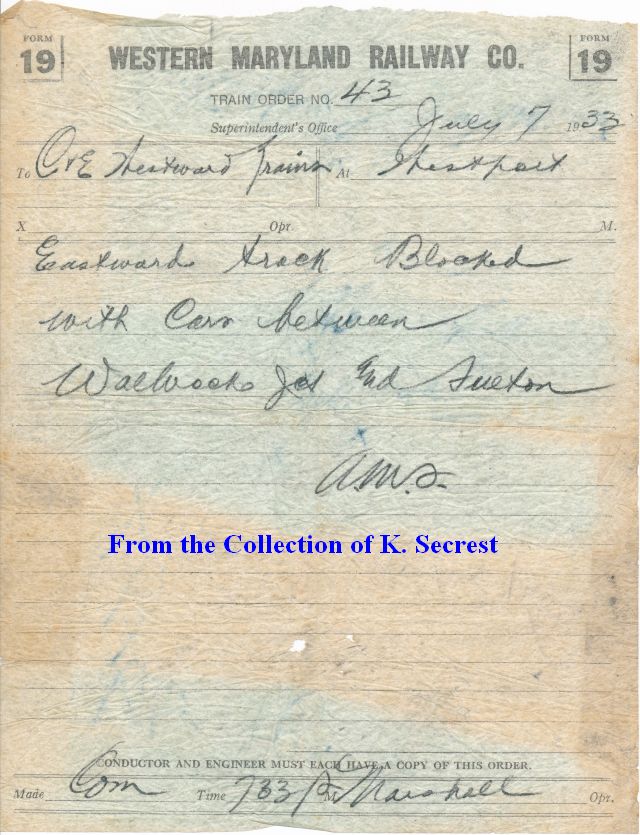 FORM 19 WESTERN MARYLAND RAILWAY CO. FORM 19
TRAIN ORDER NO. 43
Superintendent's Office July 7 1933
To C+E Westward Trains At Westport
X Opr. M.
Eastward track Blocked
with Cars between
Walbrook Jct And Fulton
From the Collection of K. Secrest
CONDUCTOR AND ENGINEER MUST EACH HAVE A COPY OF THIS ORDER.
Made Com Time 733 P M. Marshall Opr.